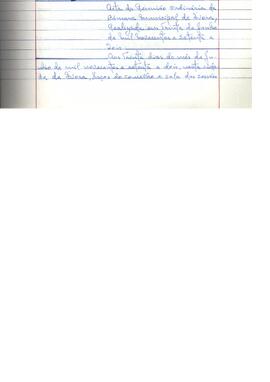 Acta da Reunião ordinária da
Câmara Municipal de Évora,
Realizada em trinta de Junho
de mil novecentos e setenta e
dois.
Aos trinta dias do mês de Ju-
nho de mil novecentos e setenta e dois, nesta cida-
de de Évora, Paços do concelho e sala das sessões